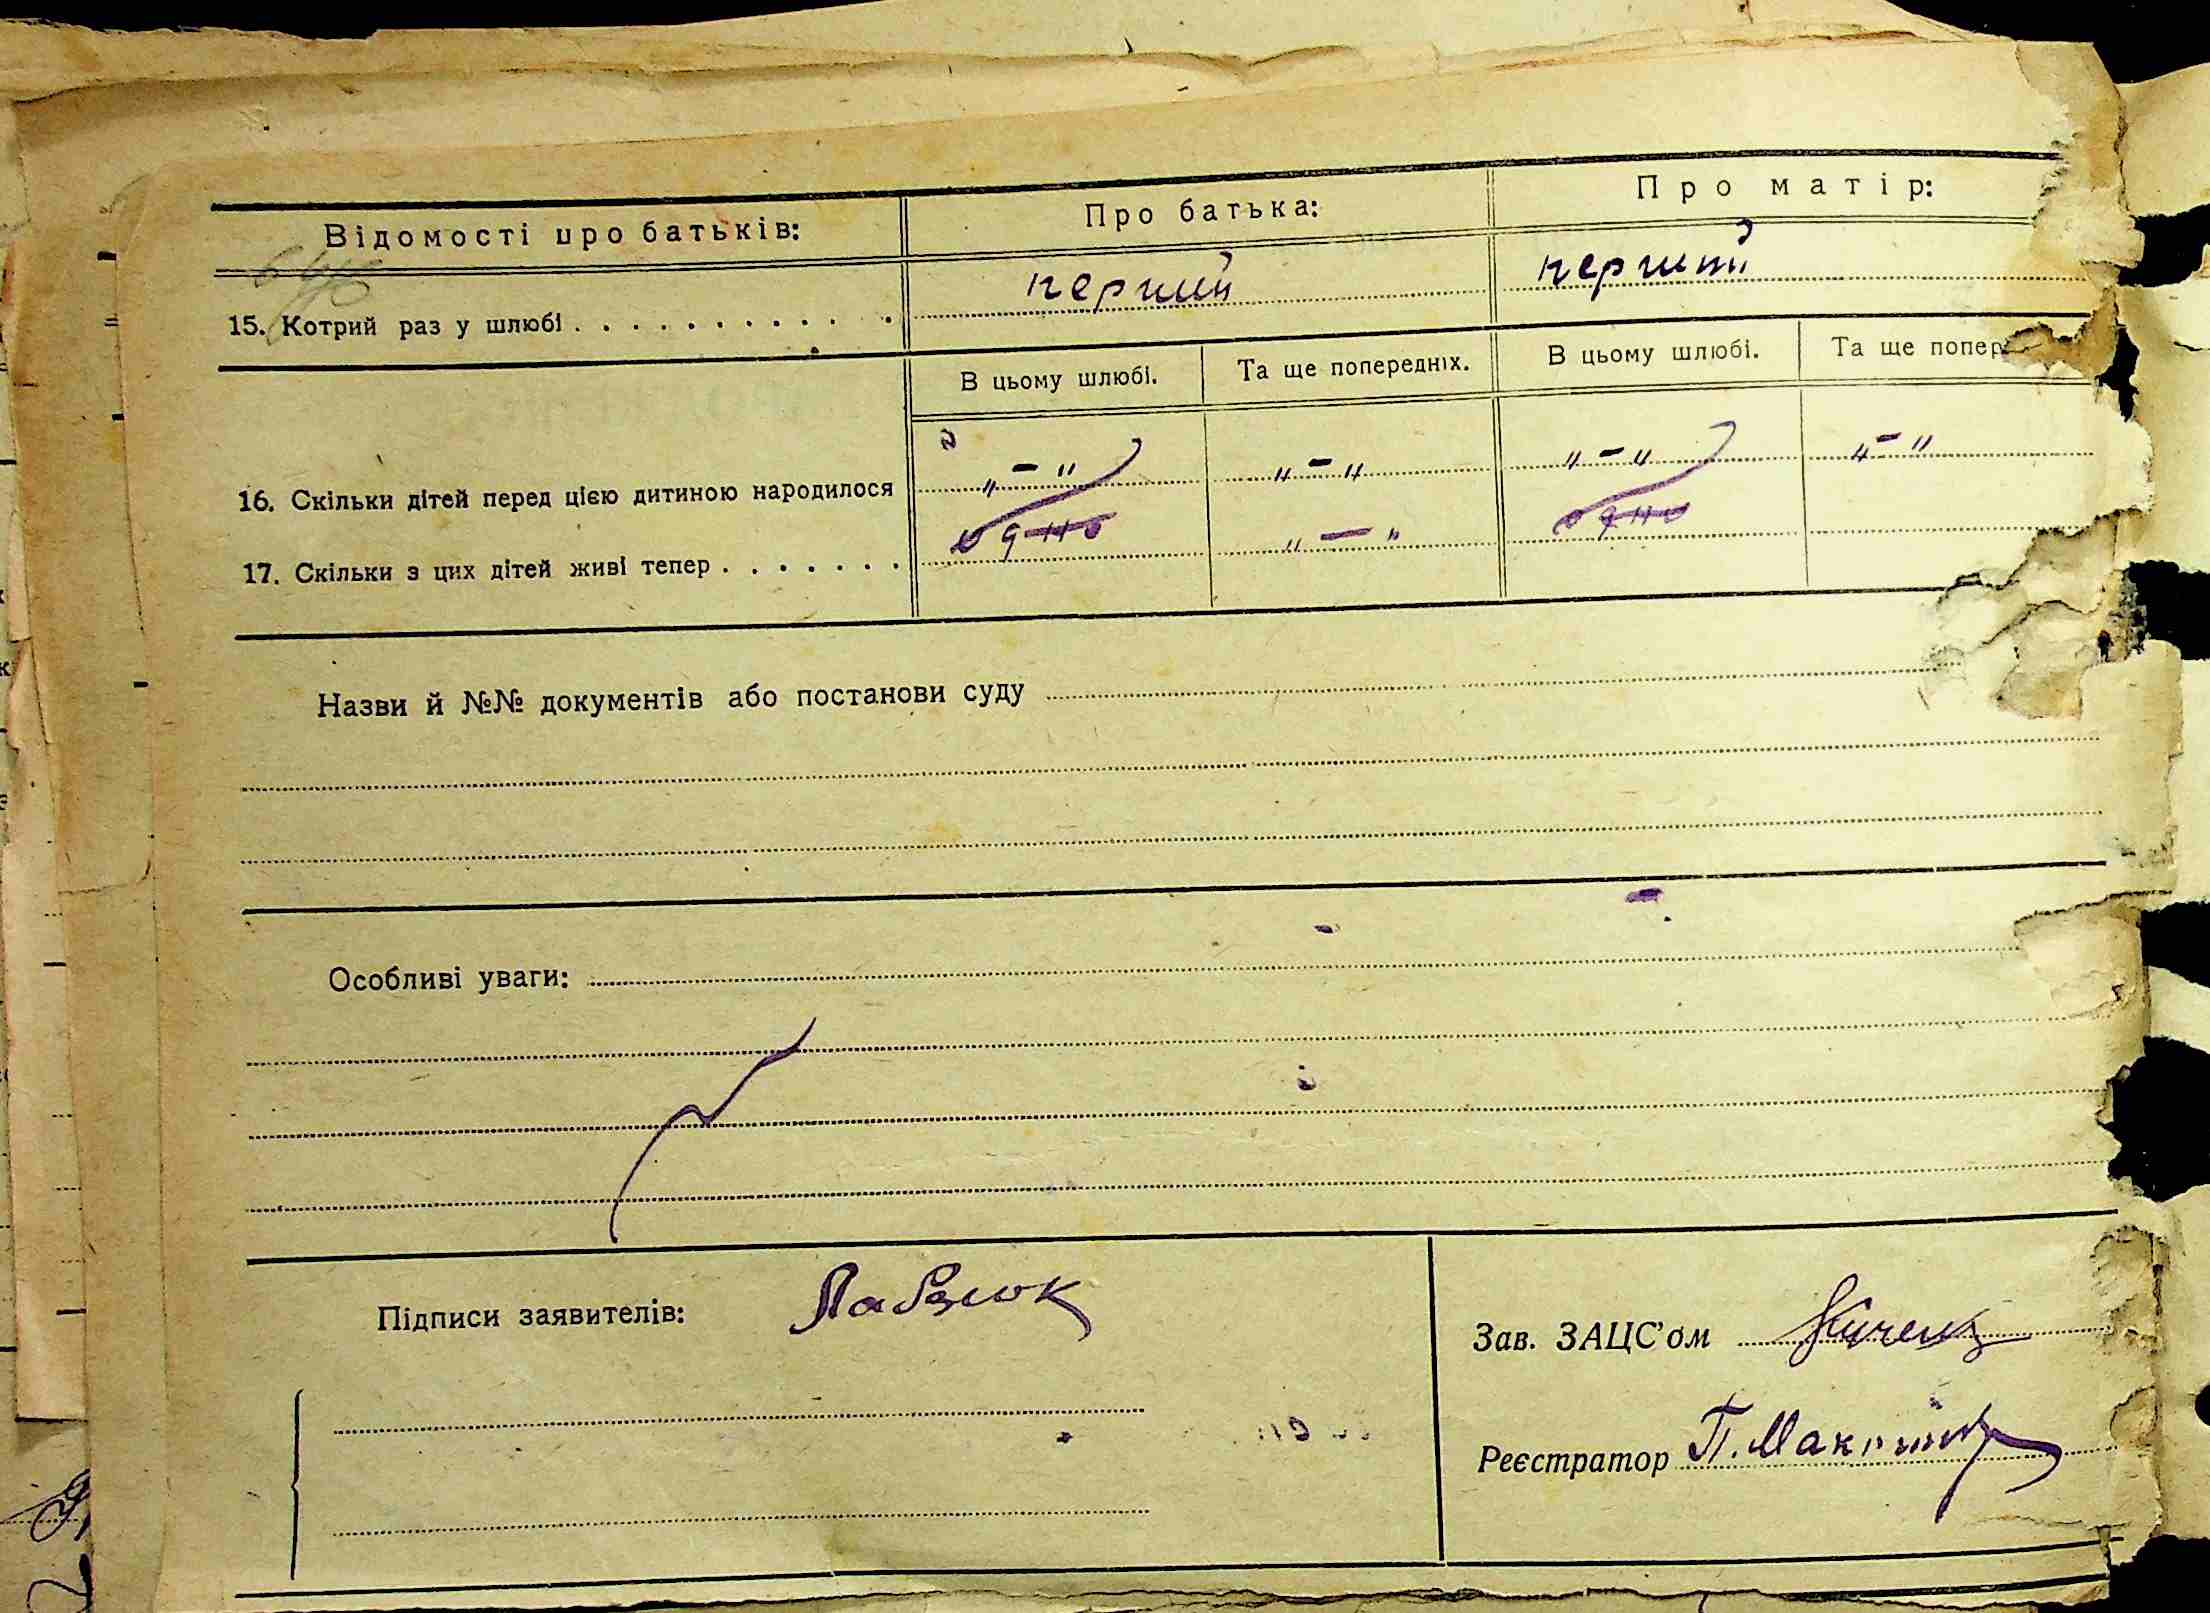 Відомості про батьків:
Про батька:
Про матір:
15. Котрий раз у шлюбі
перший
перший
В цьому шлюбі.
Та ще попередніх.
В цьому шлюбі.
Та ще попер
16. Скільки дітей перед цією дитиною народилося
„ – "
„ – "
„ – "
„ – "
17. Скільки з цих дітей живі тепер
одно
„ – "
одно
Назви й №№ документів або постанови суду
Особливі уваги:
Підписи заявителів:
Павлюк
Зав. ЗАЦС'ом
Реєстратор
П.